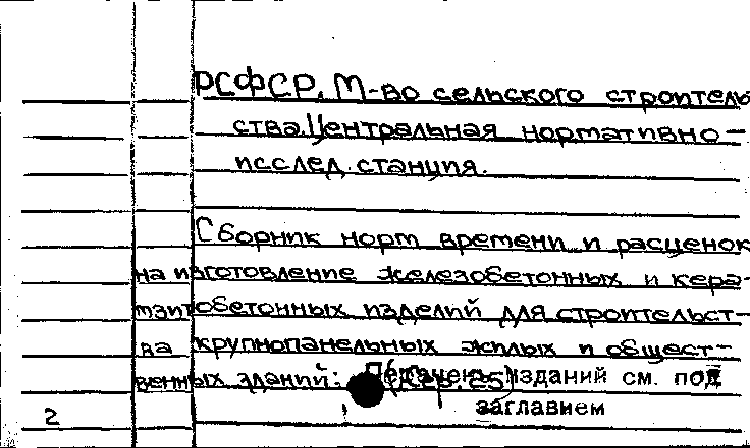 РСФСР. М-во сельского строитель
ства. Центральная нормативно-
исслед. станция.
Сборник норм времени и расценок
на изготовление железобетонных и кера-
мзитобетонных изделий для строительст-
ва крупнопанельных жилых и общест-
венных зданий: Перечень изданий см. под
2 заглавием